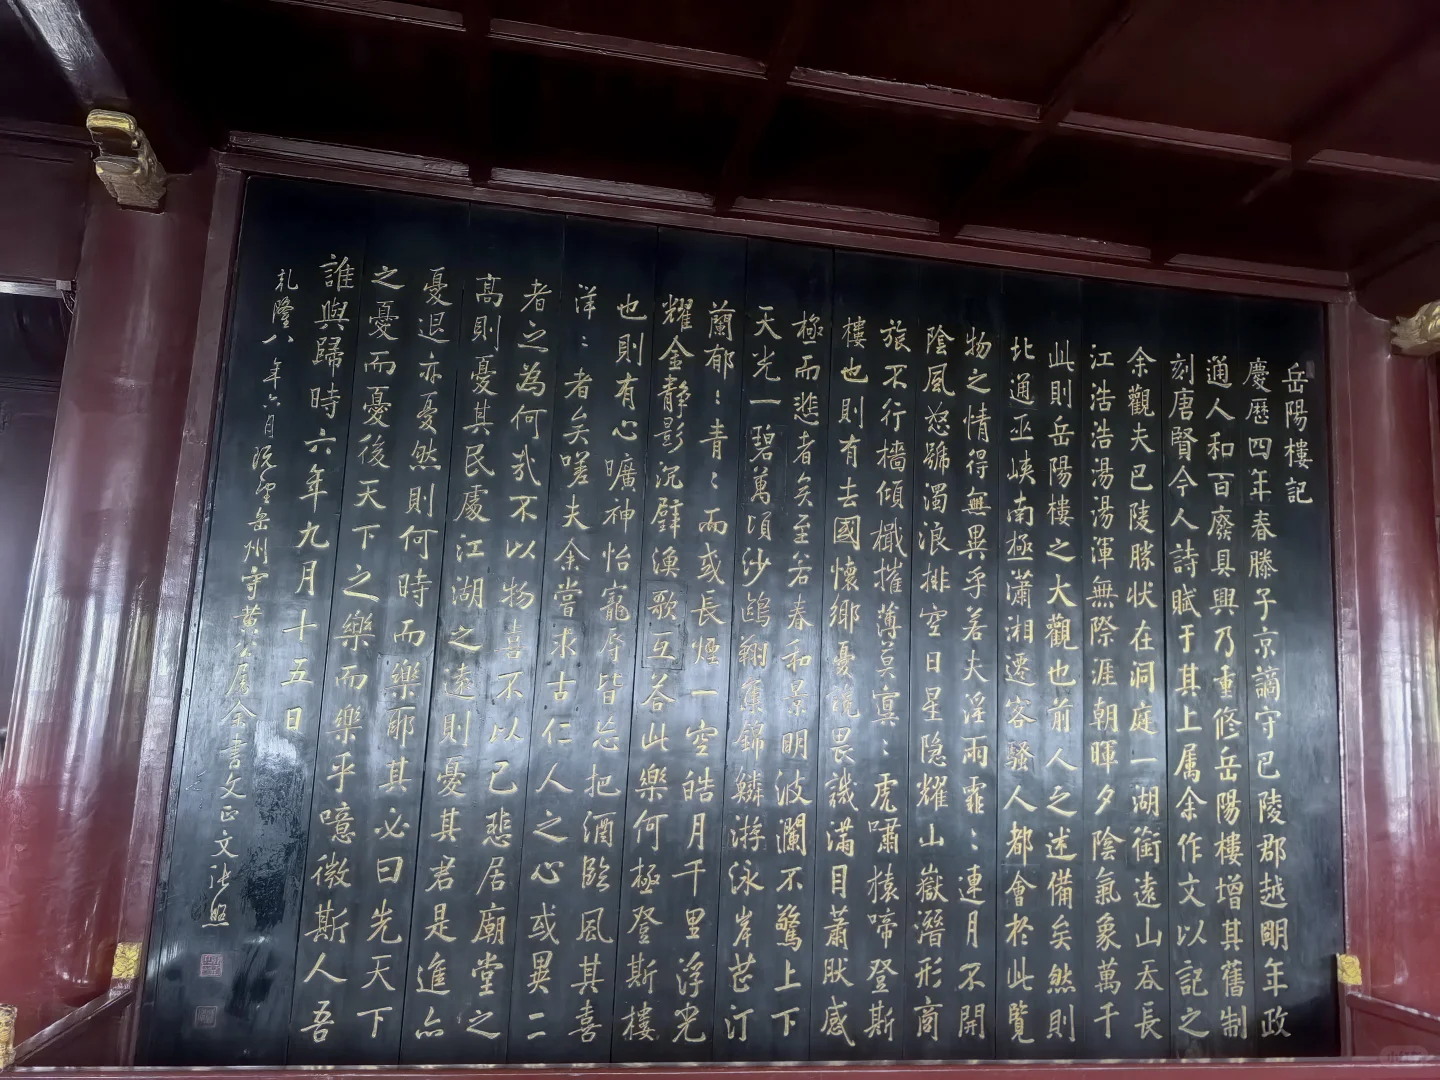 岳陽樓記
慶歷四年春滕子京謫守巴陵郡越明年政
通人和百廢具興乃重修岳陽樓增其舊制
刻唐賢今人詩賦于其上属余作文以記之
余觀夫巴陵勝状在洞庭一湖銜遠山吞長
江浩浩湯湯渾無際涯朝暉夕陰氣象萬千
此則岳陽樓之大觀也前人之述備矣然則
北通巫峽南極瀟湘遷客騷人都會於此覽
物之情得無異乎若夫淫雨霏〻連月不開
陰風怒號濁浪排空日星隐耀山嶽潛形商
旅不行檣傾檝摧薄莫冥〻虎嘯猿啼登斯
樓也則有去國懷鄉憂讒畏譏滿目蕭然感
極而悲者矣至若春和景明波瀾不驚上下
天光一碧萬頃沙鷗翔集錦鱗游泳岸芷汀
蘭郁〻青〻而或長煙一空皓月千里浮光
耀金静影沉璧漁歌互答此樂何極登斯樓
也則有心曠神怡寵辱皆忘把酒臨風其喜
洋〻者矣嗟夫余嘗求古仁人之心或異二
者之為何哉不以物喜不以己悲居廟堂之
高則憂其民處江湖之遠則憂其君是進亦
憂退亦憂然則何時而樂耶其必曰先天下
之憂而憂後天下之樂而樂乎噫微斯人吾
誰與歸時六年九月十五日
乹隆八年六月既望岳州守黄公属余書文正文张照